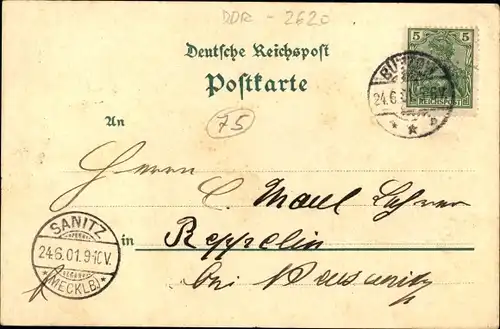 DDR - 2620
Deutsche Reichspost
Postkarte
75
5 5
REICHSPOST
BÜTZOW
24.6.
An
Herrn
C.
SANITZ
24.6.01.9-10V.
(MECKLB)
in Reppelin
bei